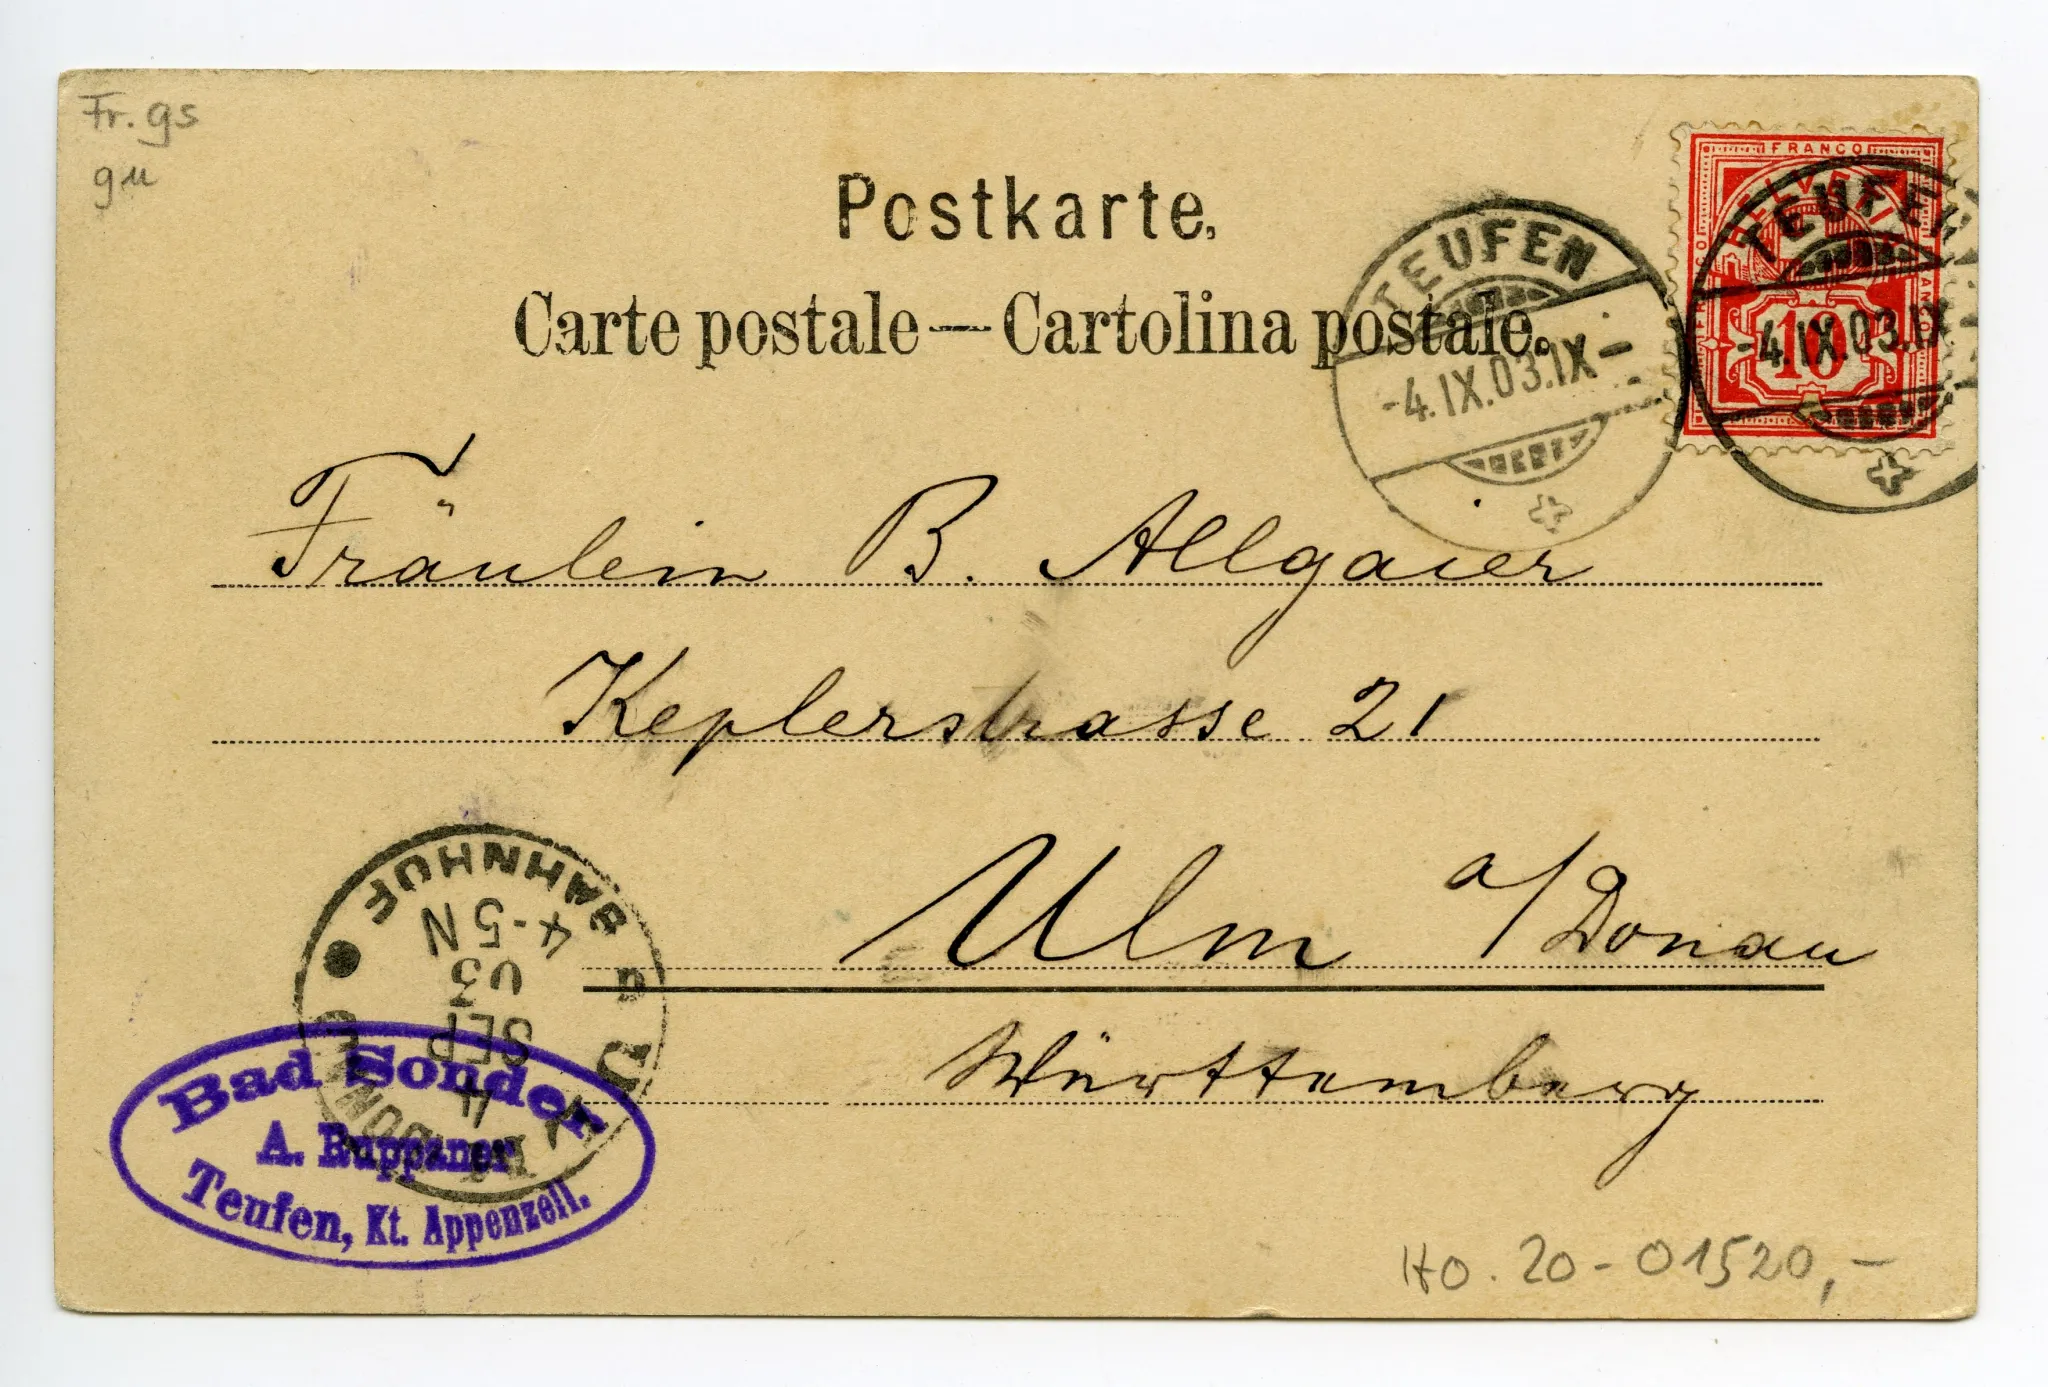 Fr. gs
gu
Postkarte.
Carte postale — Cartolina postale.
FRANCO
HELVETIA
FRANCO
FRANCO
10
TEUFEN
-4.IX.03.IX-
TEUFEN
-4.IX.03.IX
Fräulein B. Allgaier
Keplerstrasse 21
Ulm a/Donau
Württemberg
BAHNHOF
4-5N
03
SEP
ULM
Bad Sonder
A. Ruppaner
Teufen, Kt. Appenzell.
HO. 20-01520,-